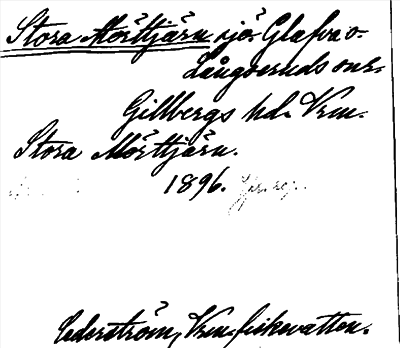 Stora Mörttjärn sjö Glafva o.
Långseruds snr.
Gillbergs hd. Vrm.
Stora Mörttjärn.
1896.
Cederström, Vrm. fiskevatten.